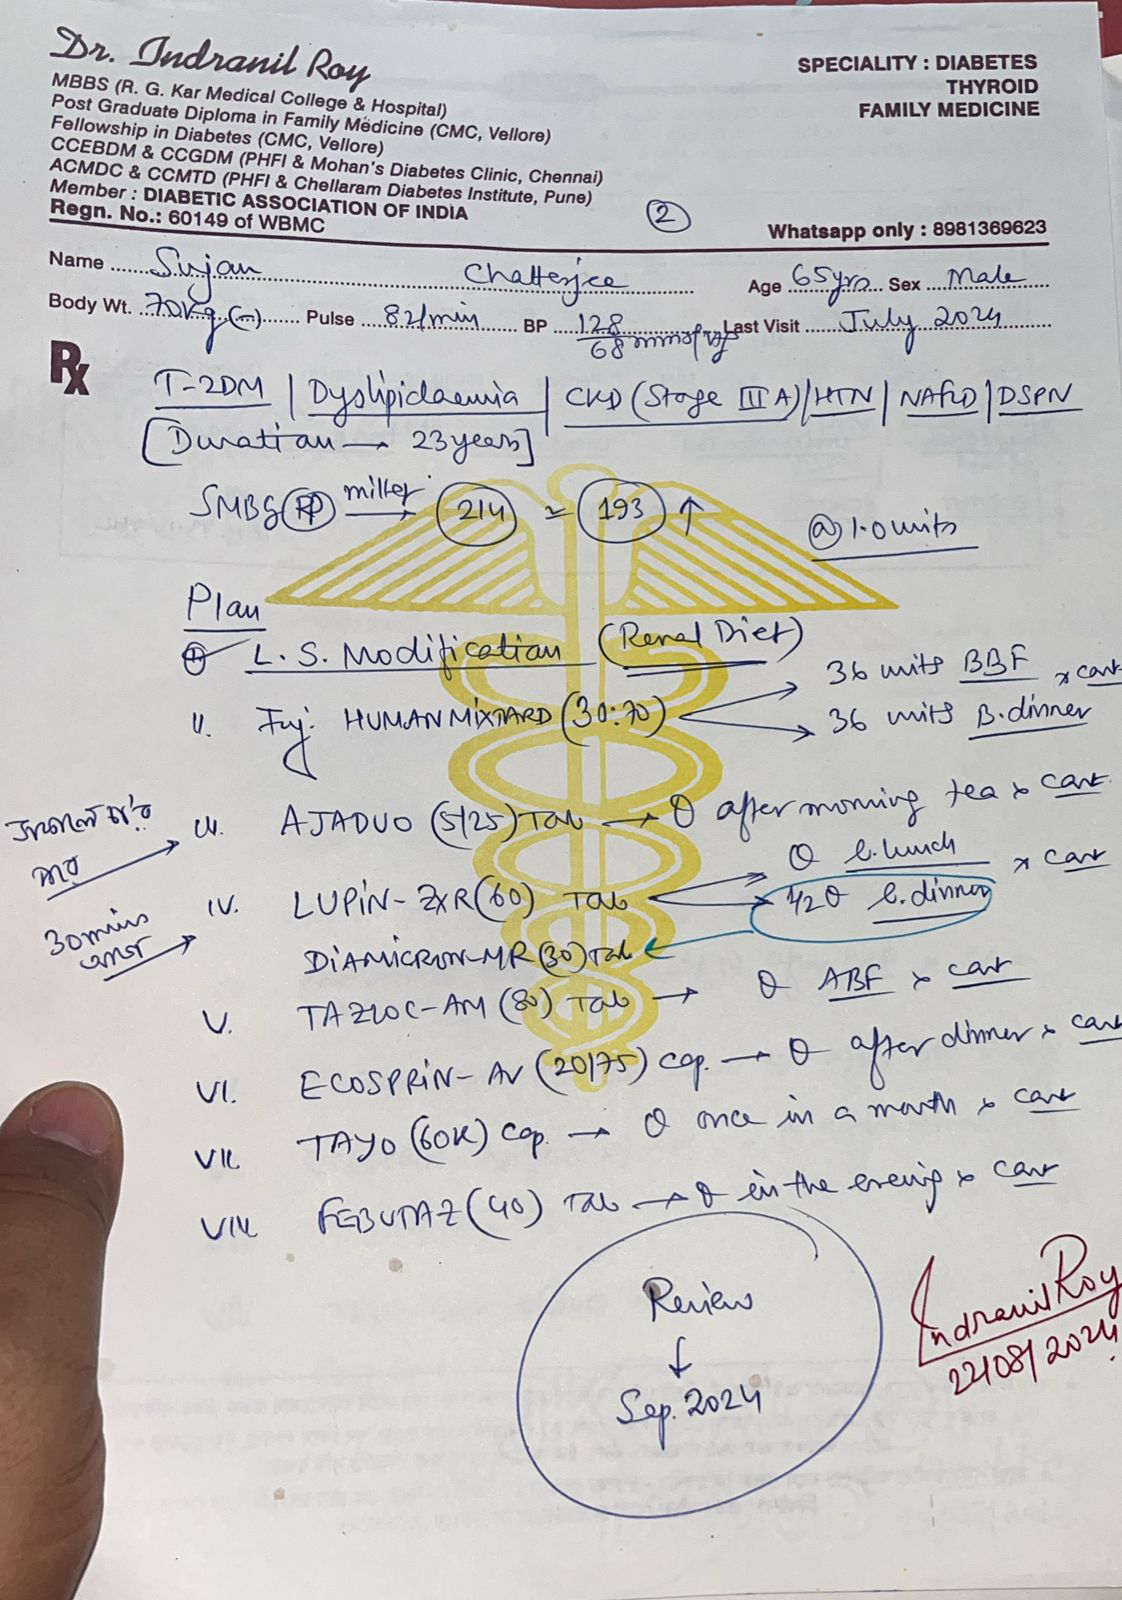 Dr. Indranil Roy
MBBS (R. G. Kar Medical College & Hospital)
Post Graduate Diploma in Family Medicine (CMC, Vellore)
Fellowship in Diabetes (CMC, Vellore)
CCEBDM & CCGDM (PHFI & Mohan's Diabetes Clinic, Chennai)
ACMDC & CCMTD (PHFI & Chellaram Diabetes Institute, Pune)
Member : DIABETIC ASSOCIATION OF INDIA
Regn. No.: 60149 of WBMC
SPECIALITY : DIABETES
THYROID
FAMILY MEDICINE
2
Whatsapp only : 8981369623
Name Sujan Chatterjee Age 65yrs Sex Male
Body Wt. 70kg (-) Pulse 82/min BP 128/68 mmofHg Last Visit July 2024
Rx
T-2DM | Dyslipidaemia | CKD (Stage III A) | HTN | NAFLD | DSPN
[Duration → 23 years]
SMBG PP → 214 ≃ 193 ↑
@ 1.0 units
Plan
L. S. Modification (Renal Diet)
II. Inj. HUMAN MIXTARD (30:70) 36 units BBF x cont
36 units B. dinner
III. AJADUO (5/25) Tab → after morning tea x cont
IV. LUPIN- (60) Tab → b. lunch x cont
1/2 b. dinner
30 mins
DIAMICRON-MR (30) Tab
V. TAZLOC-AM (80) Tab → ABF x cont
VI. ECOSPRIN-AV (20/75) Cap. → after dinner x cont
VII. TAYO (60K) Cap. → once in a month x cont
VIII. FEBUTAZ (40) Tab → in the evening x cont
Review
↓
Sep. 2024
Indranil Roy
22/08/2024